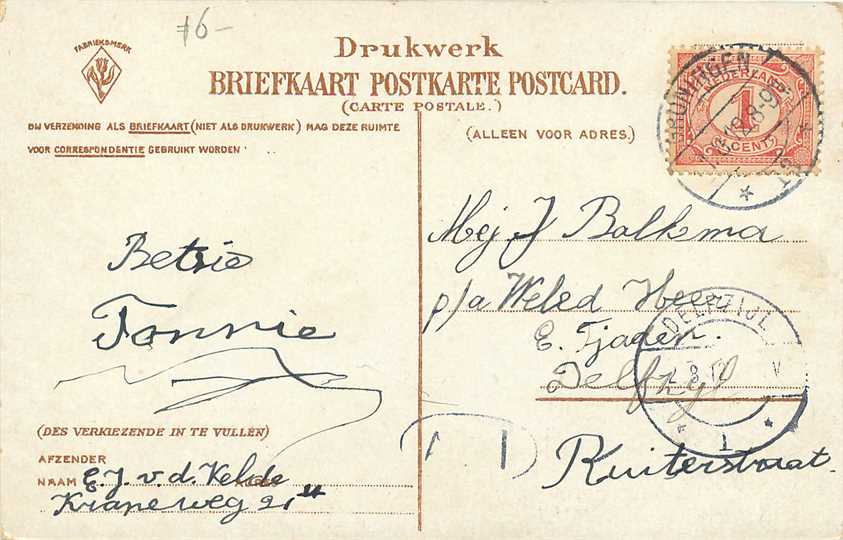 FABRIEKSMERK
16-
Drukwerk
BRIEFKAART POSTKARTE POSTCARD.
(CARTE POSTALE.)
BIJ VERZENDING ALS BRIEFKAART (NIET ALS DRUKWERK) MAG DEZE RUIMTE
VOOR CORRESPONDENTIE GEBRUIKT WORDEN
(ALLEEN VOOR ADRES.)
GRONINGEN
NEDERLAND
1
CENT
Betsie
Tonnie
Mej J Balkema
p/a Weled Heer
E. Tjaden.
Delfzijl
Ruiterstraat
DELFZIJL
1
(DES VERKIEZENDE IN TE VULLEN)
AFZENDER
NAAM E. J. v. d. Velde
Kraneweg 21